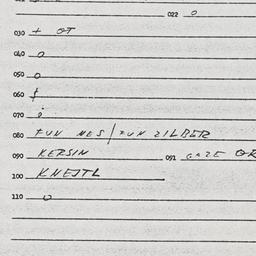 022 0
030 + OT
040 0
050 0
060 t
070 i
080 FUN NES / FUN ZILBER
090 KERSIN 091 GAZE OR
100 KNEJTL
110 0